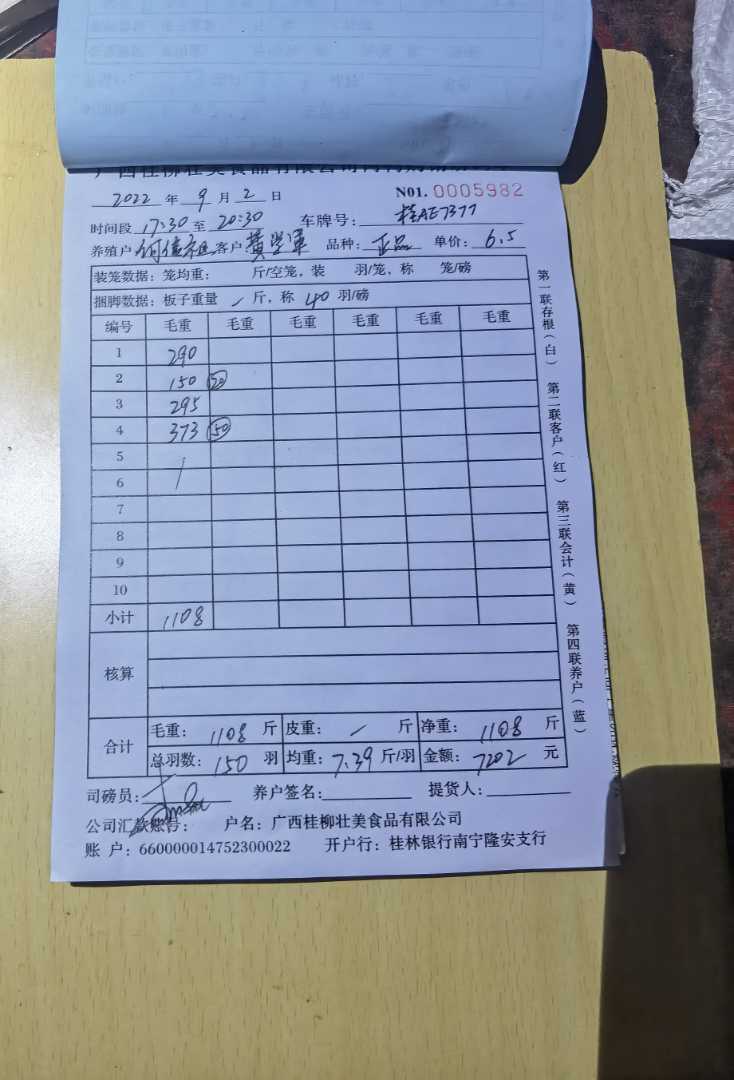 广西桂柳壮美食品有限公司
2022 年 9 月 2 日 N01. 0005982
时间段 17:30 至 20:30 车牌号: 桂AE7377
养殖户 何信祖 客户 黄坚军 品种: 正品 单价: 6.5
装笼数据: 笼均重: 斤/空笼, 装 羽/笼, 称 笼/磅
捆脚数据: 板子重量 / 斤, 称 40 羽/磅
编号 毛重 毛重 毛重 毛重 毛重 毛重
1 290
2 150 20
3 295
4 373 50
5
6
7
8
9
10
小计 1108
核算
合计 毛重: 1108 斤 皮重: / 斤 净重: 1108 斤
总羽数: 150 羽 均重: 7.39 斤/羽 金额: 7202 元
司磅员: 养户签名: 提货人:
公司汇款账号: 户名: 广西桂柳壮美食品有限公司
账 户: 660000014752300022 开户行: 桂林银行南宁隆安支行
第一联存根(白) 第二联客户(红) 第三联会计(黄) 第四联养户(蓝)